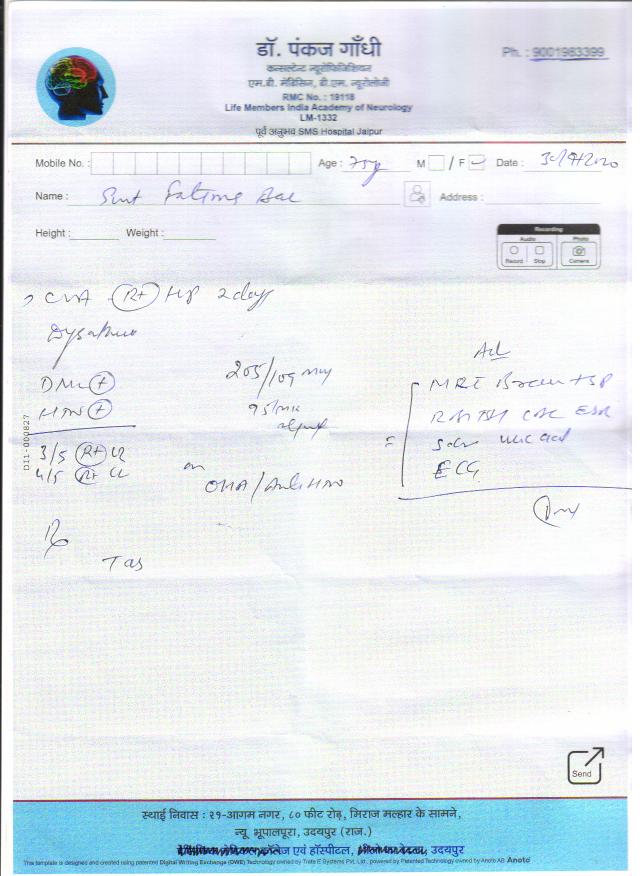 डॉ. पंकज गाँधी
कन्सल्टेन्ट न्यूरोफिजिशियन
एम.डी. मेडिसिन, डी.एम. न्यूरोलोजी
RMC No. : 19118
Life Members India Academy of Neurology
LM-1332
पूर्व अनुभव SMS Hospital Jaipur
Ph. : 9001983399
Mobile No. : Age : 75y M / F Date :
Name : Smt Address :
Height : Weight :
Recording
Audio Photo
Record Stop Camera
CVA Rt HP 2 days
DM +
HTN +
205/109
95/min
3/5 Rt UL
4/5 Rt LL
on
OHA/Anti HTN
Ad
MRI Brain
CBC ESR
uric acid
ECG
Rx
Tab
D11-000827
Send
स्थाई निवास : २१-आगम नगर, ८० फीट रोड़, मिराज मल्हार के सामने,
न्यू भूपालपूरा, उदयपुर (राज.)
कॉलेज एवं हॉस्पीटल, उदयपुर
This template is designed and created using patented Digital Writing Exchange (DWE) Technology owned by Trate E Systems Pvt. Ltd., powered by Patented Technology owned by Anoto AB Anoto